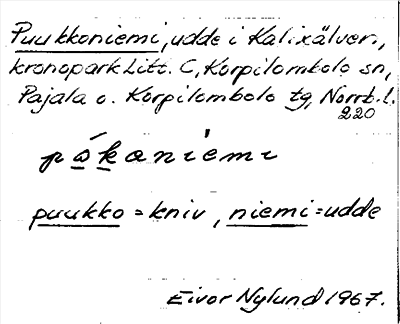 Puukkoniemi, udde i Kalixälven,
kronopark Litt. C, Korpilombolo sn,
Pajala o. Korpilombolo tg, Norrb. l.
220
pòkaniemi
puukko = kniv, niemi = udde
Eivor Nylund 1967.